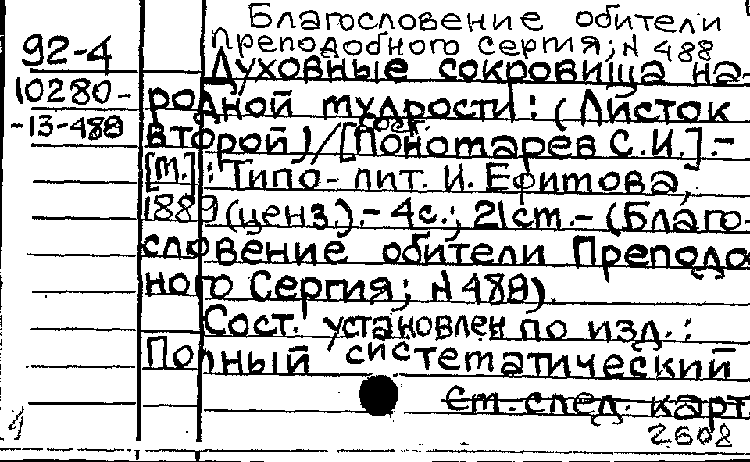 Благословение обители
Преподобного Сергия; N 488
92-4
Духовные сокровища на-
10280-
родной мудрости: (Листок
-13-488
второй) / [сост.
Пономарев С.И.].-
[М.]: Типо-лит. И. Ефимова,
1889 (ценз.).- 4с.; 21см.- (Благо-
словение обители Преподо
ного Сергия; N 488).
Сост. установлен по изд.:
Полный систематический
См. след. карт
2608